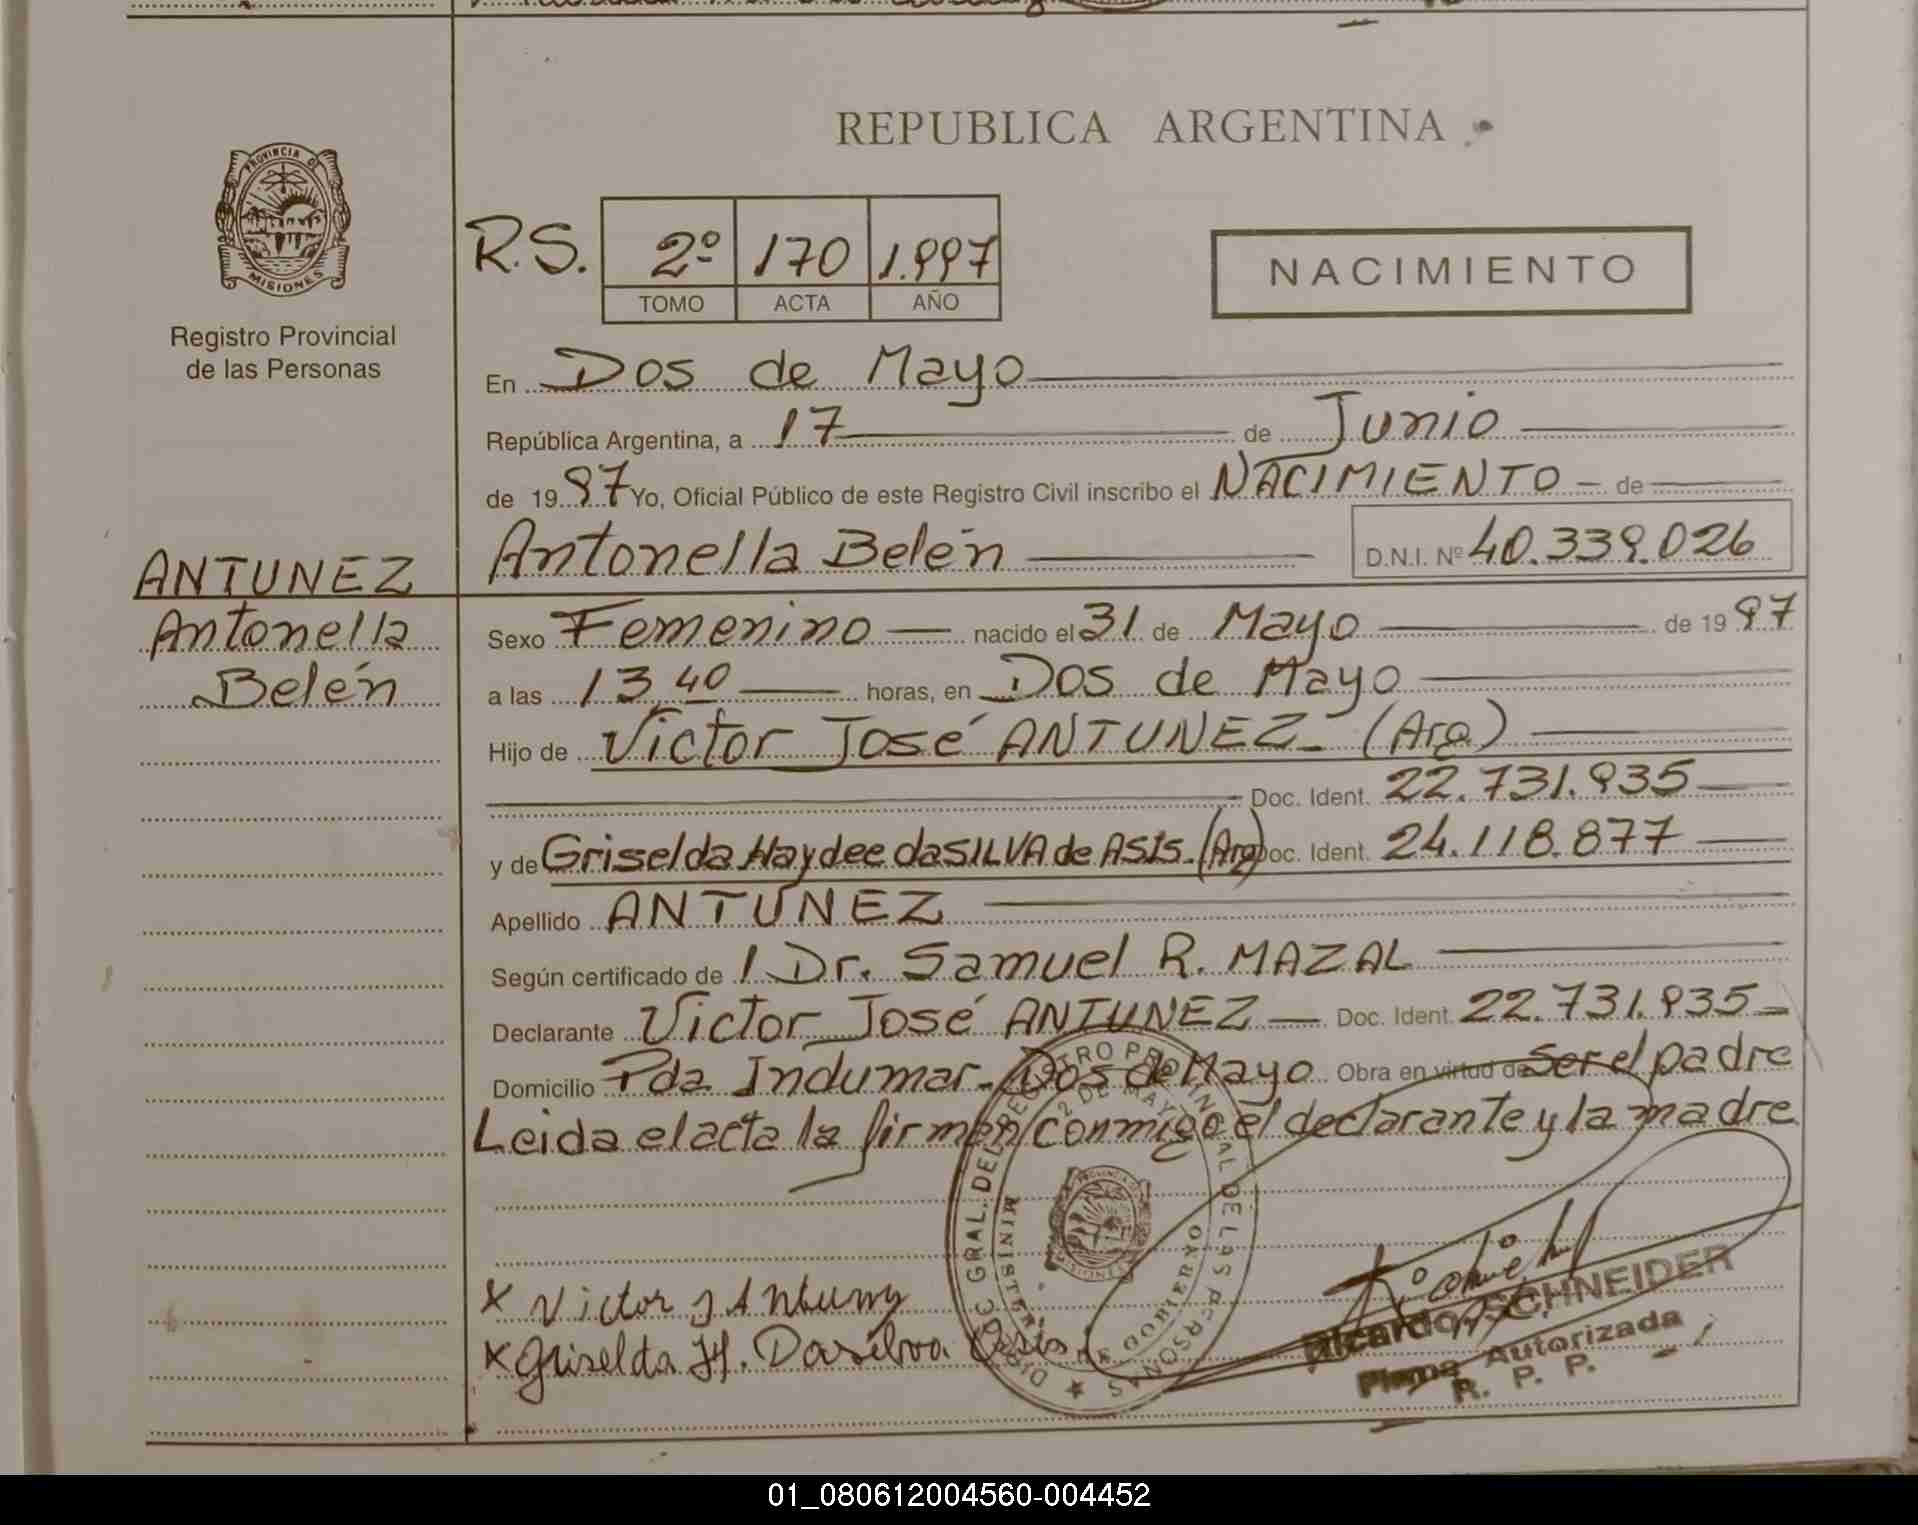 REPUBLICA ARGENTINA
PROVINCIA DE
MISIONES
Registro Provincial
de las Personas
R.S. 2º 170 1.997
TOMO ACTA AÑO
NACIMIENTO
En Dos de Mayo
República Argentina, a 17 de Junio
de 1997 Yo, Oficial Público de este Registro Civil inscribo el NACIMIENTO de
Antonella Belén D.N.I. Nº 40.339.026
ANTUNEZ
Antonella
Belén
Sexo Femenino nacido el 31 de Mayo de 1997
a las 13,40 horas, en Dos de Mayo
Hijo de Victor José ANTUNEZ (Arg)
Doc. Ident. 22.731.935
y de Griselda Haydee da SILVA de ASIS. (Arg) Doc. Ident. 24.118.877
Apellido ANTUNEZ
Según certificado de l Dr. Samuel R. MAZAL
Declarante Victor José ANTUNEZ Doc. Ident. 22.731.935
Domicilio Pda Indumar. Dos de Mayo Obra en virtud de Ser el padre
Leida el acta la firman conmigo el declarante y la madre
DIREC GRAL. DEL REGISTRO PROVINCIAL DE LAS PERSONAS
2 DE MAYO
MINISTERIO GOBIERNO
x Victor J Antunez
x Griselda H. Dasilva Asis
Ricardo SCHNEIDER
Firma Autorizada
R. P. P.
01_080612004560-004452